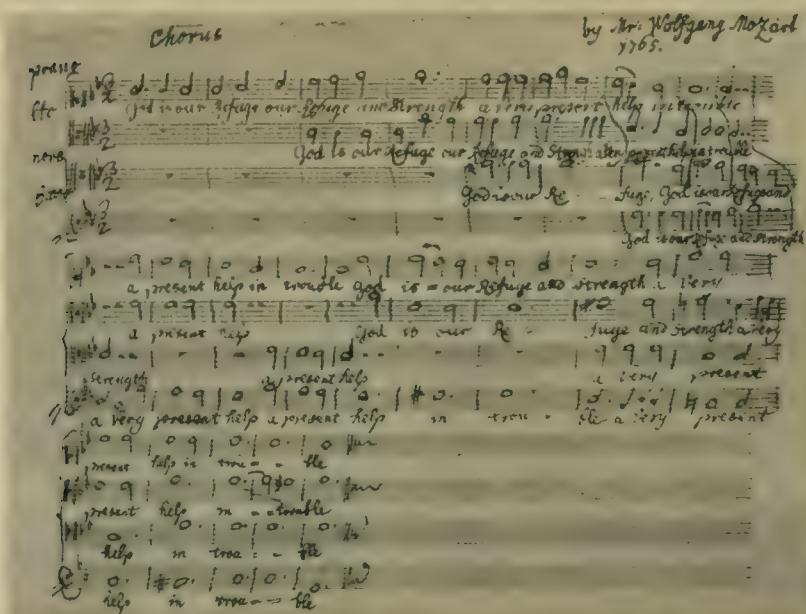 Chorus
by Mr. Wolfgang Mozart
1765.
God is our Refuge our Refuge and Strength a very present help in trouble
God is our Refuge our Refuge and Strength a very present help in trouble
God is our Re - fuge, God is our Refuge and
God is our Refuge and strength
a present help in trouble God is our Refuge and strength a very
a present help God is our Re - fuge and strength a very
strength a present help a very present
a very present help a present help in trou - ble a very present
present help in trou - - ble
present help in - trouble
help in trou - - ble
help in trou - - ble